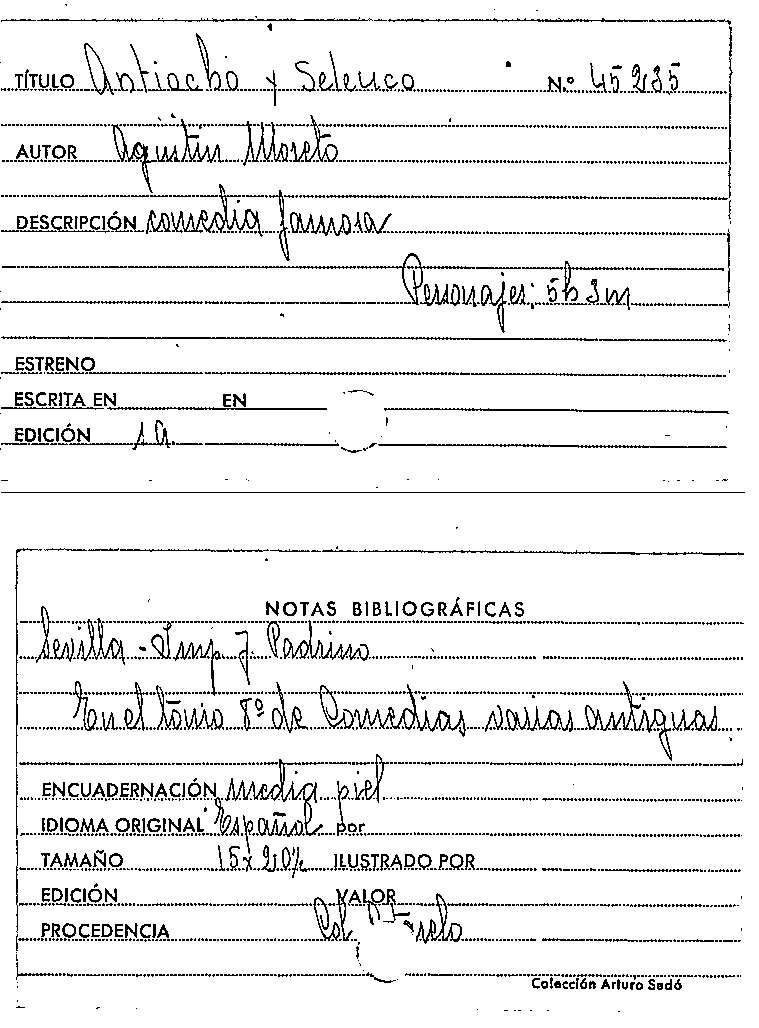 TÍTULO Antiocho y Seleuco N.º 45235
AUTOR Agustin Moreto
DESCRIPCIÓN comedia famosa
Personajes: 5h 3m
ESTRENO
ESCRITA EN EN
EDICIÓN 1a.
NOTAS BIBLIOGRÁFICAS
Sevilla - Imp J. Padrino
En el tomo 8º de Comedias varias antiguas.
ENCUADERNACIÓN media piel
IDIOMA ORIGINAL Español por
TAMAÑO 15x20½ ILUSTRADO POR
EDICIÓN VALOR
PROCEDENCIA Col.
Colección Arturo Sedó